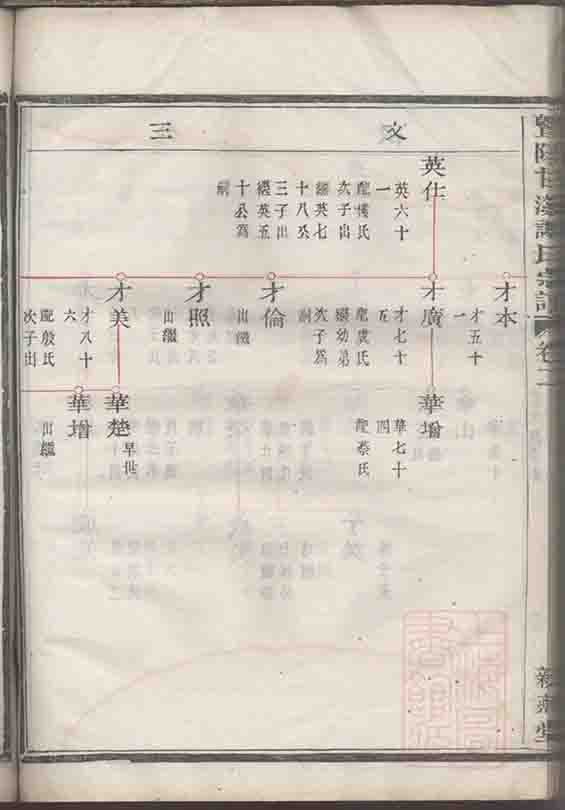 氏宗譜
卷二
文
三
英仕
英六十
一
配樓氏
次子出
繼英七
十八公
三子出
繼英五
十公爲
嗣
才本
才五十
一
才廣
才七十
五
配虞氏
繼幼弟
次子爲
嗣
才倫
出繼
才照
出繼
才美
才八十
六
配殷氏
次子出
華增
華七十
四
配蔡氏
華楚
早世
華增
出繼
上海圖
書館藏